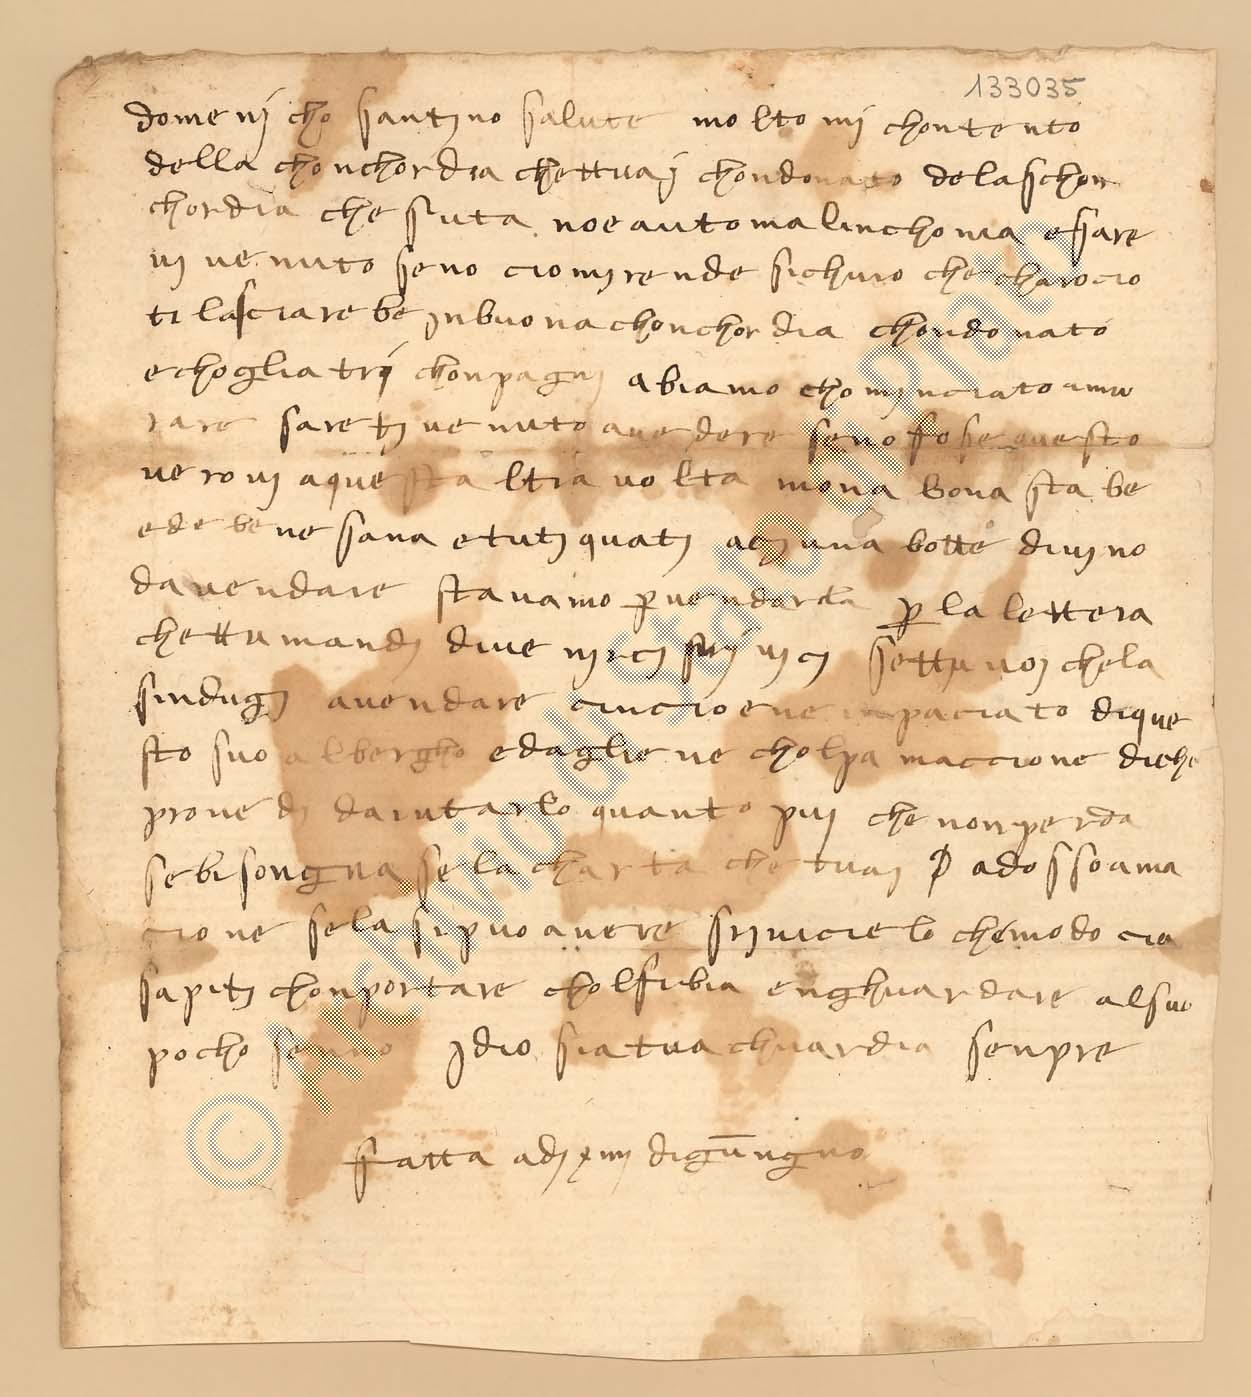 133035
domenjcho santjno salute molto mj chontento
della chonchordia chettuaj chondonato de la schon
chordia che suta noe auto malinchonia e sare
vj venuto seno cio mj rende sichuro che charocio
ti lasciarebe jnbuona chonchordia chondonato
e chogliatrj chonpagnj abiamo chominciato amu
rare saretj venuto auedere seno fose questo
verovj a questa altra volta mona bona sta be
ed e bene sana e tutj quatj acj una botte di vino
da vendare stavamo per vendarla per la lettera
chettu mandj di ve settu voj chela
sindugj a vendare cincio e ne inpaciato di que
sto suo albergho e daglie ne cholpa maccione diche
provedj daiutarlo quanto puj che non perda
se bisongna se la charta che tuaj adosso a ma
cione se la si puo avere chemodo cia
sapitj chonportare chol e nghuardare al suo
pocho senno jdio sia tua chuardia senpre
fatta adj di gungno
© Archivio di Stato di Prato